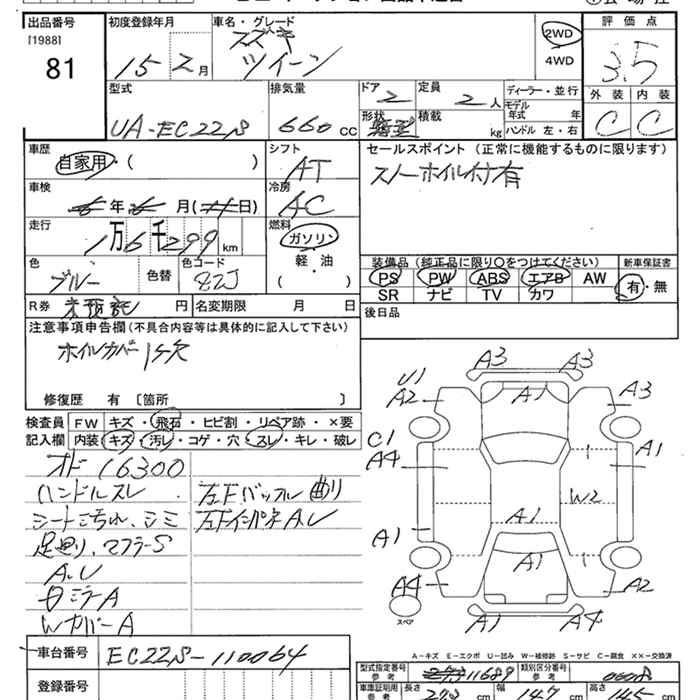 出品番号
[1988]
81
初度登録年月
15 2 月
車名・グレード
スズキ
ツイン
2WD
4WD
評価点
3.5
型式
UA-EC22S
排気量
660 CC
ドア 2
定員 2 人
形状
積載 kg
ディーラー・並行
モデル年式 年
ハンドル 左・右
外装 内装
C C
車歴
自家用・( )
シフト
AT
セールスポイント(正常に機能するものに限ります)
スノーホイル付有
車検
年 月(日)
冷房
AC
走行
1万6千299 km
燃料
ガソリン
軽・油
( )
色
ブルー
色替
色コード
82J
装備品(純正品に限り○をつけてください)
新車保証書
PS PW ABS エアB AW
SR ナビ TV カワ
有・無
R券 未預託 円
名変期限 月 日
後日品
注意事項申告欄(不具合内容等は具体的に記入して下さい)
ホイルカバー1ケ欠
修復歴 有 〔箇所 〕
検査員記入欄
FW キズ・飛石・ヒビ割・リペア跡・×要
内装 キズ・汚レ・コゲ・穴・スレ・キレ・破レ
オド 16300
ハンドルスレ
シートこちれ、シミ
足廻り、マフラーS
A.U
日ミラーA
WカバーA
左Fバッフル曲り
左FインパネA.U
A3 A3
U1
A2 A1 A3
C1
A4 A1
W2
A1
A1
A1
A4 A2
スペア
A1 A4
A-キズ E-エクボ U-凹み W-補修跡 S-サビ C-腐食 XX-交換済
車台番号
EC22S-110064
登録番号
型式指定番号
参考
11689
類別区分番号
参考
0608
車庫証明用
参考
長さ
273 cm
幅
147 cm
高さ
145 cm